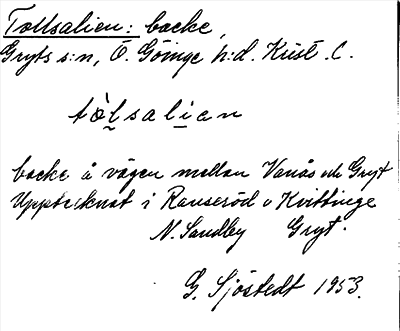 Tollsalien: backe,
Gryts s:n, Ö. Göinge h:d. Krist. C.
tòlsalian
backe å vägen mellan Vanås och Gryt
Upptecknat i Ranseröd o Kvittinge
N. Sandby Gryt.
G. Sjöstedt 1953.